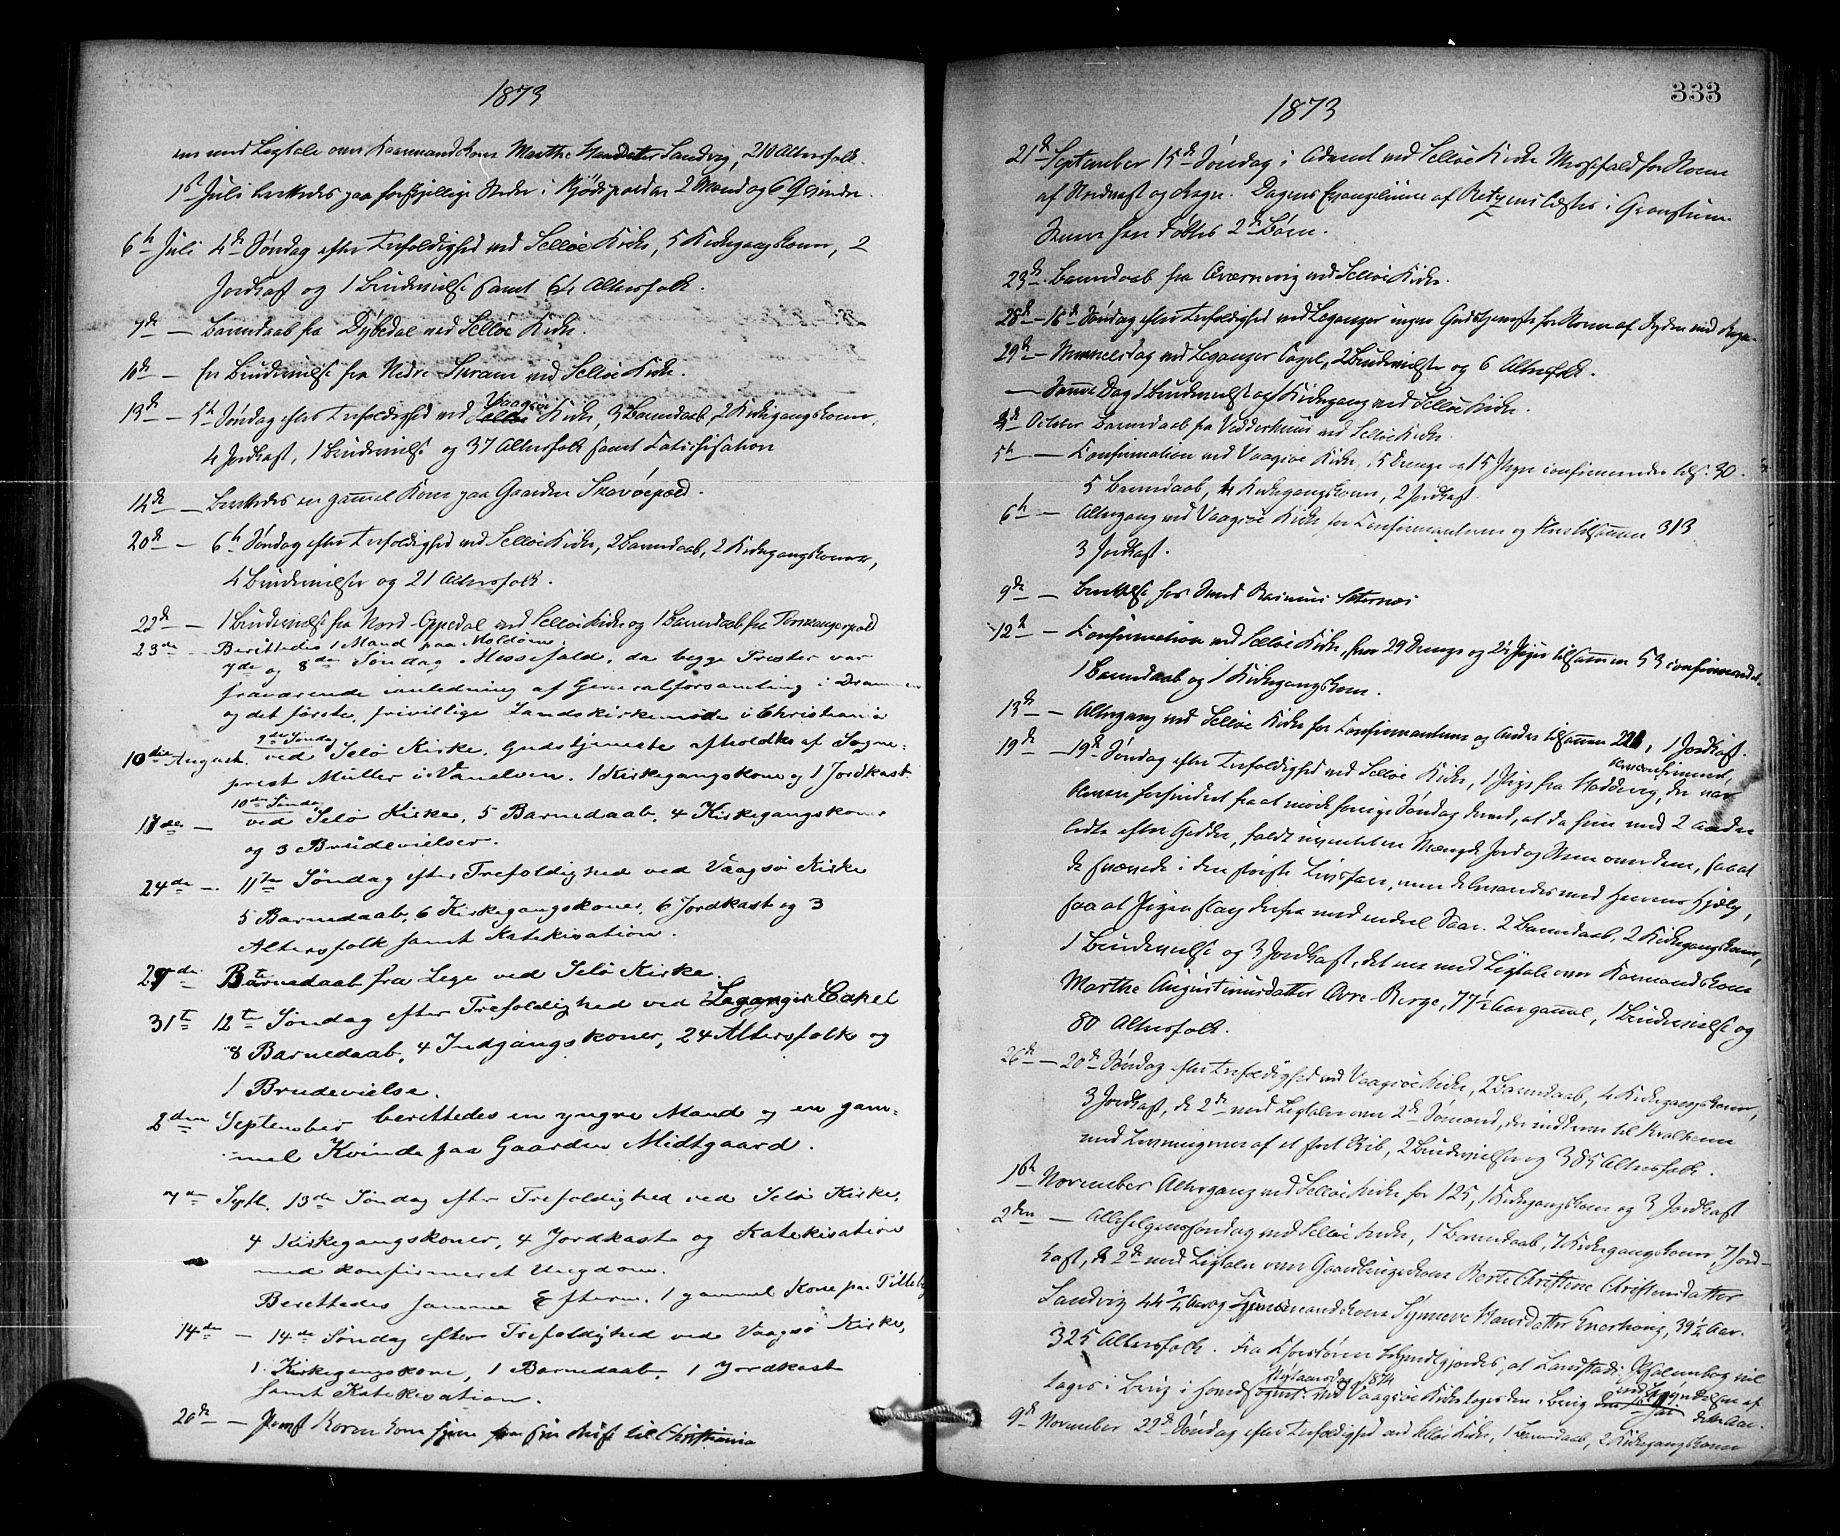 1873
en med Ligtale over Kaarmandskone Marthe Sandvig, 210 Altersfolk.
1ste Juli berettedes paa forskjellige Steder i 2 Mænd og 6 Qvinder.
6te Juli 4de Søndag efter Trefoldighed ved Selløe Kirke, 5 Kirkegangskoner, 2
Jordkast og 1 Brudevielse samt 64 Altersfolk.
7de — Barnedaab fra Dybedal ved Selløe Kirke.
10de — En Brudevielse fra Nedre ved Selløe Kirke.
13de — 5te Søndag efter Trefoldighed ved Vaagsø Kirke, 3 Barnedaab, 2 Kirkegangskoner,
4 Jordkast, 1 Brudevielse og 37 Altersfolk samt Catechisation
14de — Berettedes en gammel Kone paa Gaarden Skavøepold.
20de — 6te Søndag efter Trefoldighed ved Selløe Kirke, 2 Barnedaab, 2 Kirkegangskoner,
4 Brudevielser og 21 Altersfolk.
22de — 1 Brudevielse fra Nord-Oppedal ved Selløe Kirke og 1 Barnedaab fra
23de — Berettedes 1 Mand paa Moldøen.
7de og 8de Søndag Messefald, da begge Prester var
fraværende i anledning af Generalforsamling i Drammen
og det første, frivillige Landskirkemøde i Christiania
9de Søndag
10de August. ved Selø Kirke, Gudstjeneste afholdtes af Sogne-
prest Müller i Vanelven. 1 Kirkegangskone og 1 Jordkast
10de Søndag
17de — ved Selø Kirke, 5 Barnedaab, 4 Kirkegangskoner
og 3 Brudevielser.
24de — 11te Søndag efter Trefoldighed ved Vaagsø Kirke
5 Barnedaab, 6 Kirkegangskoner, 6 Jordkast og 3
Altersfolk samt Katekisation.
29de Barnedaab fra Lege ved Selø Kirke.
31te 12te Søndag efter Trefoldighed ved Leganger Capel
8 Barnedaab, 4 Indgangskoner, 24 Altersfolk og
1 Brudevielse.
2den September berettedes en yngre Mand og en gam-
mel Kvinde paa Gaarden Midtgaard.
7de Septb. 13de Søndag efter Trefoldighed ved Selø Kirke,
4 Kirkegangskoner, 4 Jordkast og Katekisation
med konfirmeret Ungdom.
Berettedes samme Efterm. 1 gammel Kone paa
14de — 14de Søndag efter Trefoldighed ved Vaagsø Kirke,
1 Kirkegangskone, 1 Barnedaab, 1 Jordkast
samt Katekisation.
20de — til Christiania
333
1873
21de September 15de Søndag i Advent ved Selløe Kirke Messefald for Storm
af Nordvest og Regn. Dagens Evangelium af læstes i
2de Børn.
23de Barnedaab fra ved Selløe Kirke.
28de — 16de Søndag efter Trefoldighed ved Leganger ingen Gudstjeneste for Storm af Syden med Regn.
29de — ved Leganger Capel, 2 Brudevielser og 6 Altersfolk.
— Samme Dag 1 Brudevielse og 1 Kirkegang ved Selløe Kirke.
October Barnedaab fra Vedderhuus ved Selløe Kirke.
5te — Confirmation ved Vaagsøe Kirke, 15 Drenge og 15 Piger confirmerede tils. 30.
5 Barnedaab, 4 Kirkegangskoner, 2 Jordkast.
6te — Altergang ved Vaagsøe Kirke for Confirmanterne og Flere tilsammen 313
3 Jordkast.
9de — Rasmus
12te — Confirmation ved Selløe Kirke, hvor 29 Drenge og Piger tilsammen 53 confirmeredes.
1 Barnedaab og 1 Kirkegangskone.
13de — Altergang ved Selløe Kirke for Confirmanterne og Andre tilsammen 1 Jordkast.
19de — 19de Søndag efter Trefoldighed ved Selløe Kirke, 1 Pige fra confirmered, der var
bleven forhindret fra at møde forrige Søndag derved, at da hun med 2 andre
ledte efter Geder, faldt uventet en Mængde Jord og Steen over dem, saa at
de svævede i den største Livsfare, men de bevaredes med Herrens Hjelp,
saa at Pigen slap derfra med endeel Saar. 2 Barnedaab, 2 Kirkegangskoner,
1 Brudevielse og 3 Jordkast, det ene med Ligtale over Kaarmandskone
Marthe Augustinusdatter Øvre-Berge, 77½ Aar gammel, 1 Brudevielse og
80 Altersfolk.
26de — 20de Søndag efter Trefoldighed ved Vaagsøe Kirke, 2 Barnedaab, 4 Kirkegangskoner,
3 Jordkast, de 2de med Ligtaler over 2de Sømænd,
af et stort Skib, 2 Brudevielser og 385 Altersfolk.
1ste November Altergang ved Selløe Kirke for 125, 1 Kirkegangskone og 3 Jordkast
2den — Allehelgenssøndag ved Selløe Kirke, 1 Barnedaab, 7 Kirkegangskoner, 7 Jord-
kast, de 2de med Ligtaler over Gaardbrugerkone Berte Christine Christensdatter
Sandvig 44 Aar og Synneve Hansdatter 39½ Aar.
325 Altersfolk. Fra Chorsdøren bekjendtgjordes, at Landstads Psalmebog vil
tages i Brug i Nytaarsdag 1874 ved Vaagsøe Kirke toges den i Brug ved Begyndelsen af
dette Aar.
9de November 22de Søndag efter Trefoldighed ved Selløe Kirke, 1 Barnedaab, 2 Kirkegangskoner